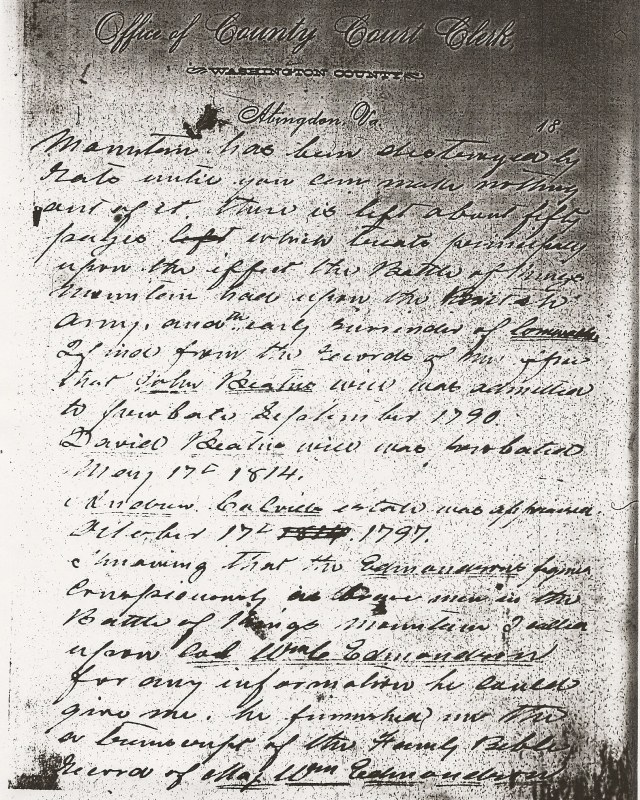 Office of County Court Clerk,
WASHINGTON COUNTY
Abingdon, Va. 18
Mountain has been destroyed by
Rats until you can make nothing
out of it. There is left about fifty
pages left which treats principally
upon the effect the Battle of Kings
Mountain had upon the British
Army, and the early surrender of
I find from the records of my office
that John Beaties will was admitted
to probate September 1790.
David Beaties will was probated
May 17th 1814.
Andrew Colvills estate was appraised
October 17th 1814 1797.
Knowing that the Edmondsons figured
conspicuously as brave men in the
Battle of Kings Mountain I called
upon Col Wm Edmondson
for any information he could
give me. he furnished me the
a transcript of the Family Bible
Record of Maj. Wm Edmondson